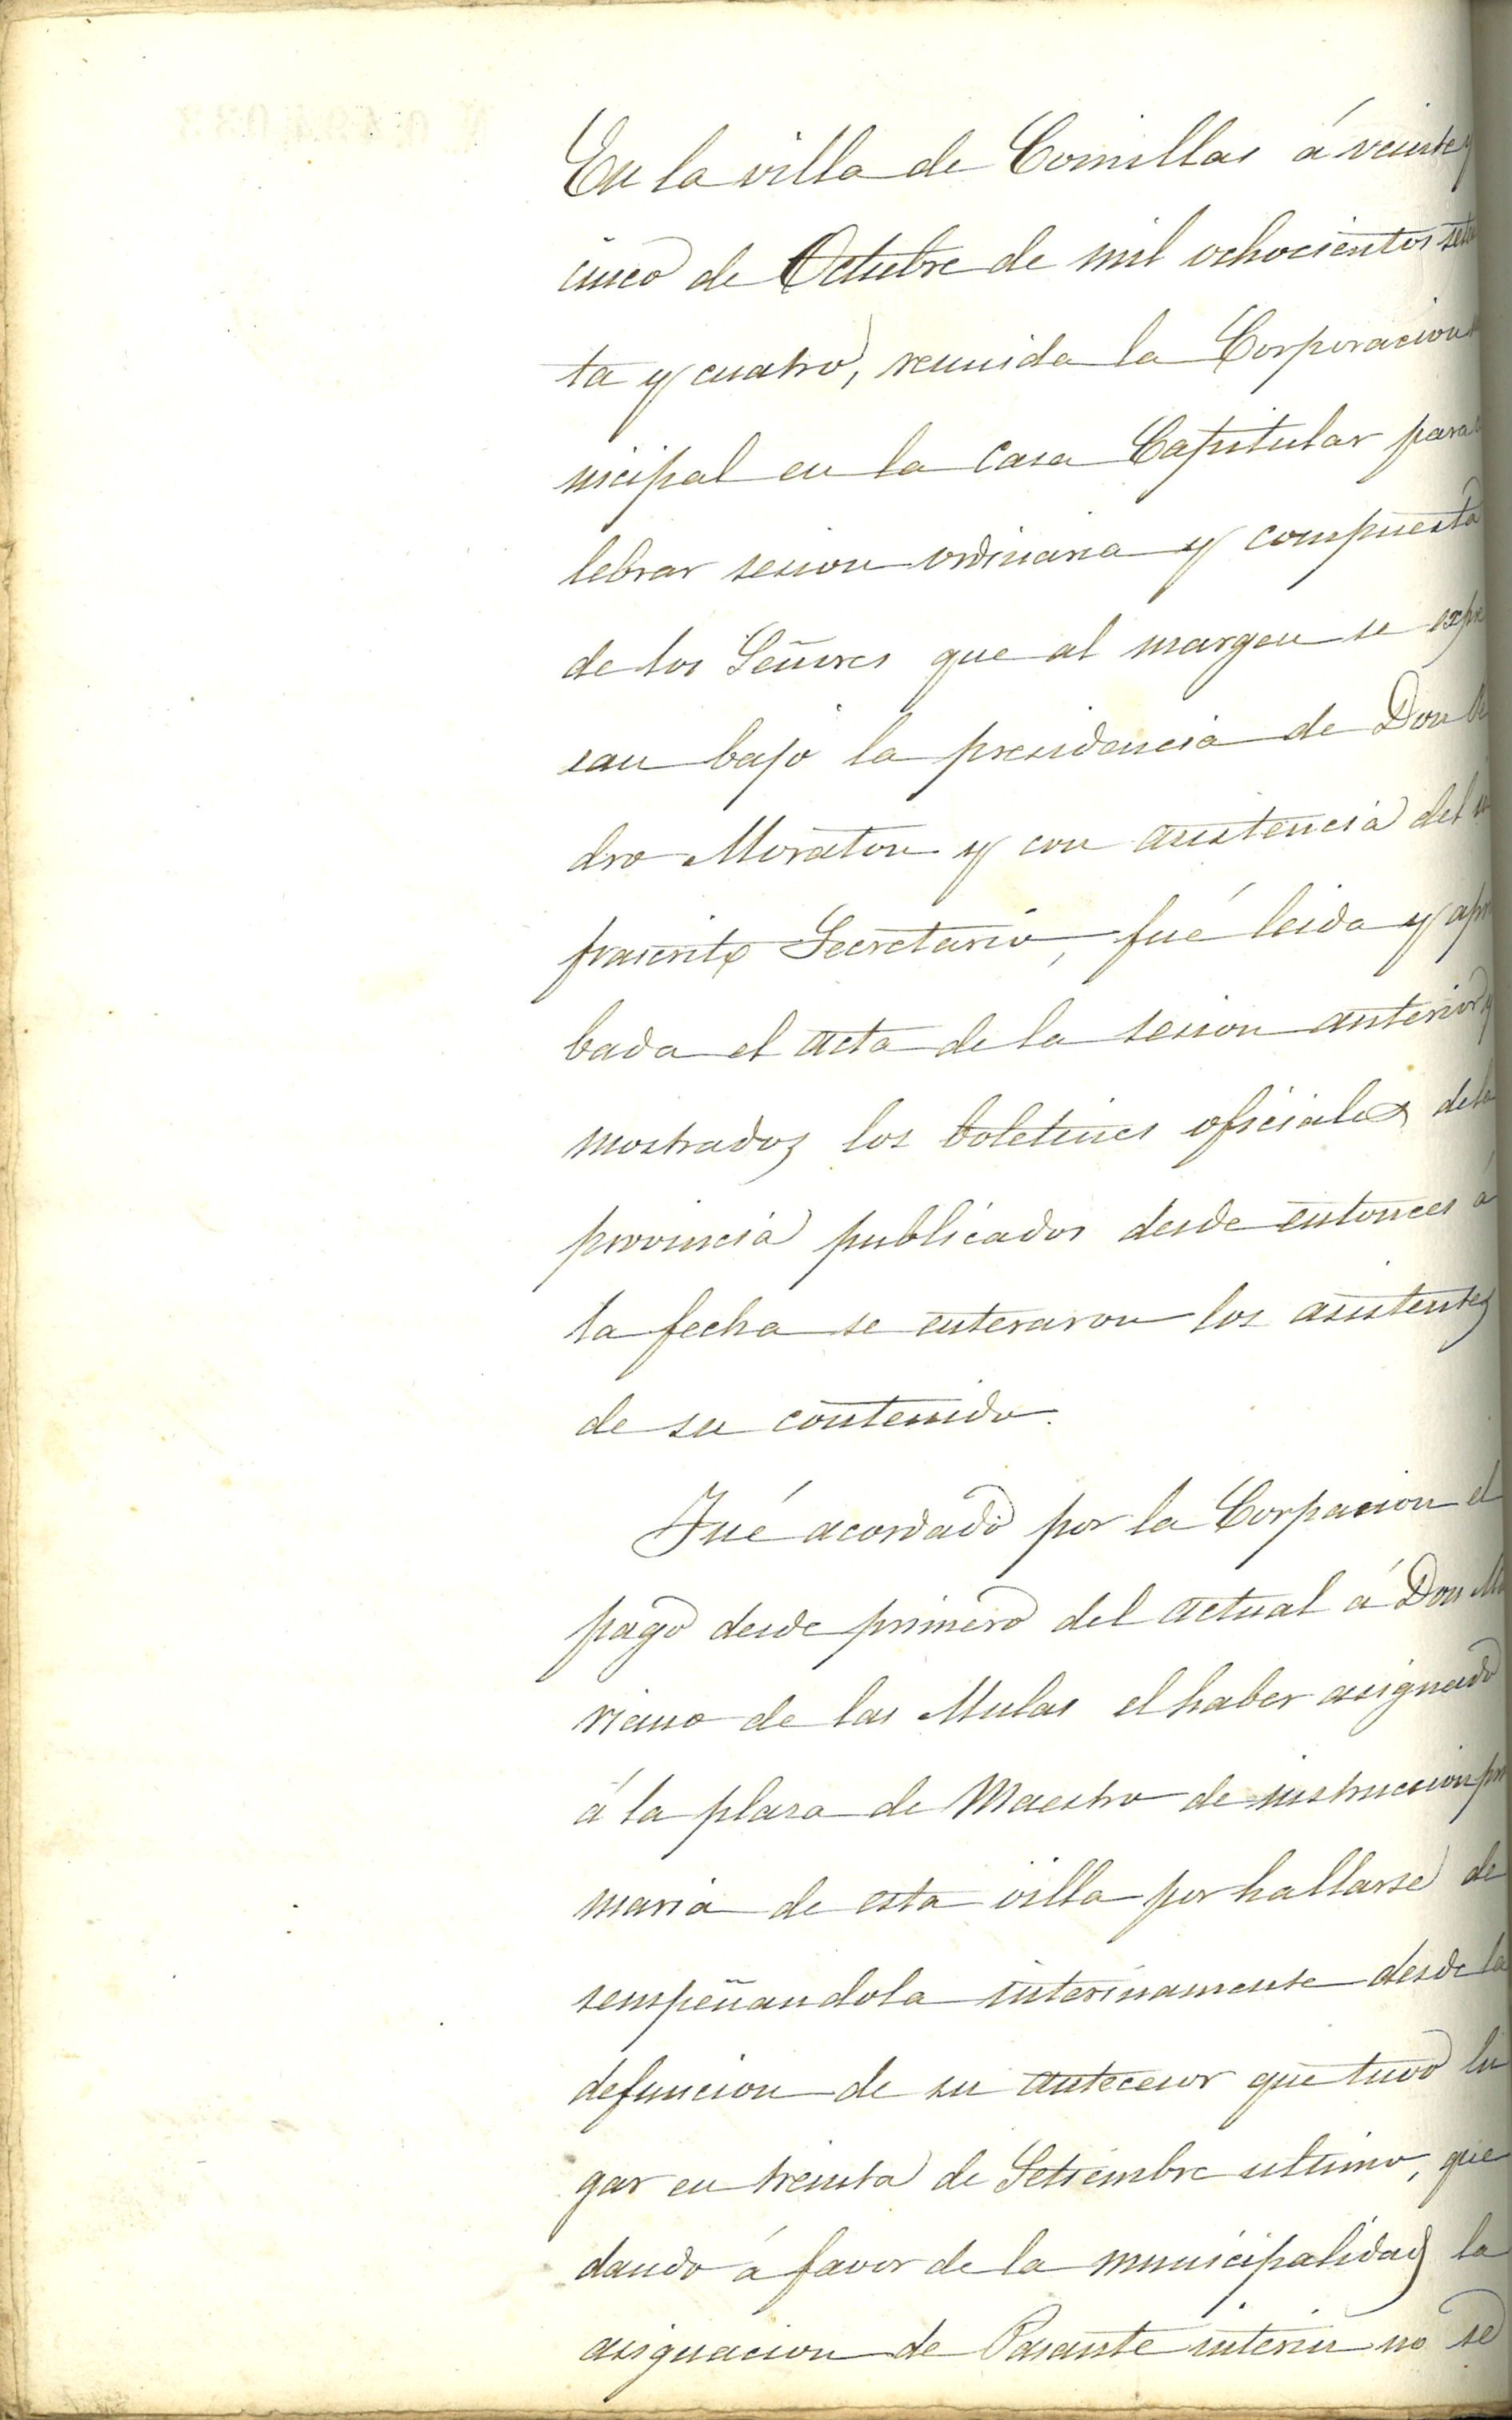 En la villa de Comillas á veinte y
cinco de Octubre de mil ochocientos seten
ta y cuatro, reunida la Corporacion
nicipal en la Casa Capitular para
lebrar sesion ordinaria y compuesta
de los Señores que al margen se expre
san bajo la presidencia de Don
dro Moraton y con asistencia del in
frascrito Secretario, fué leida y apro
bada el acta de la sesion anterior y
mostrados los boletines oficiales de la
provincia publicados desde entonces á
la fecha se enteraron los asistentes
de su contenido.
Fué acordado por la Corpacion el
pago desde primero del actual á Don Ma
riano de las Mulas el haber asignado
á la plaza de Maestro de instruccion pri
maria de esta villa por hallarse de
sempeñandola interinamente desde la
defuncion de su antecesor que tuvo lu
gar en treinta de Setiembre ultimo, que
dando á favor de la municipalidad la
asignacion de Pasante interin no se